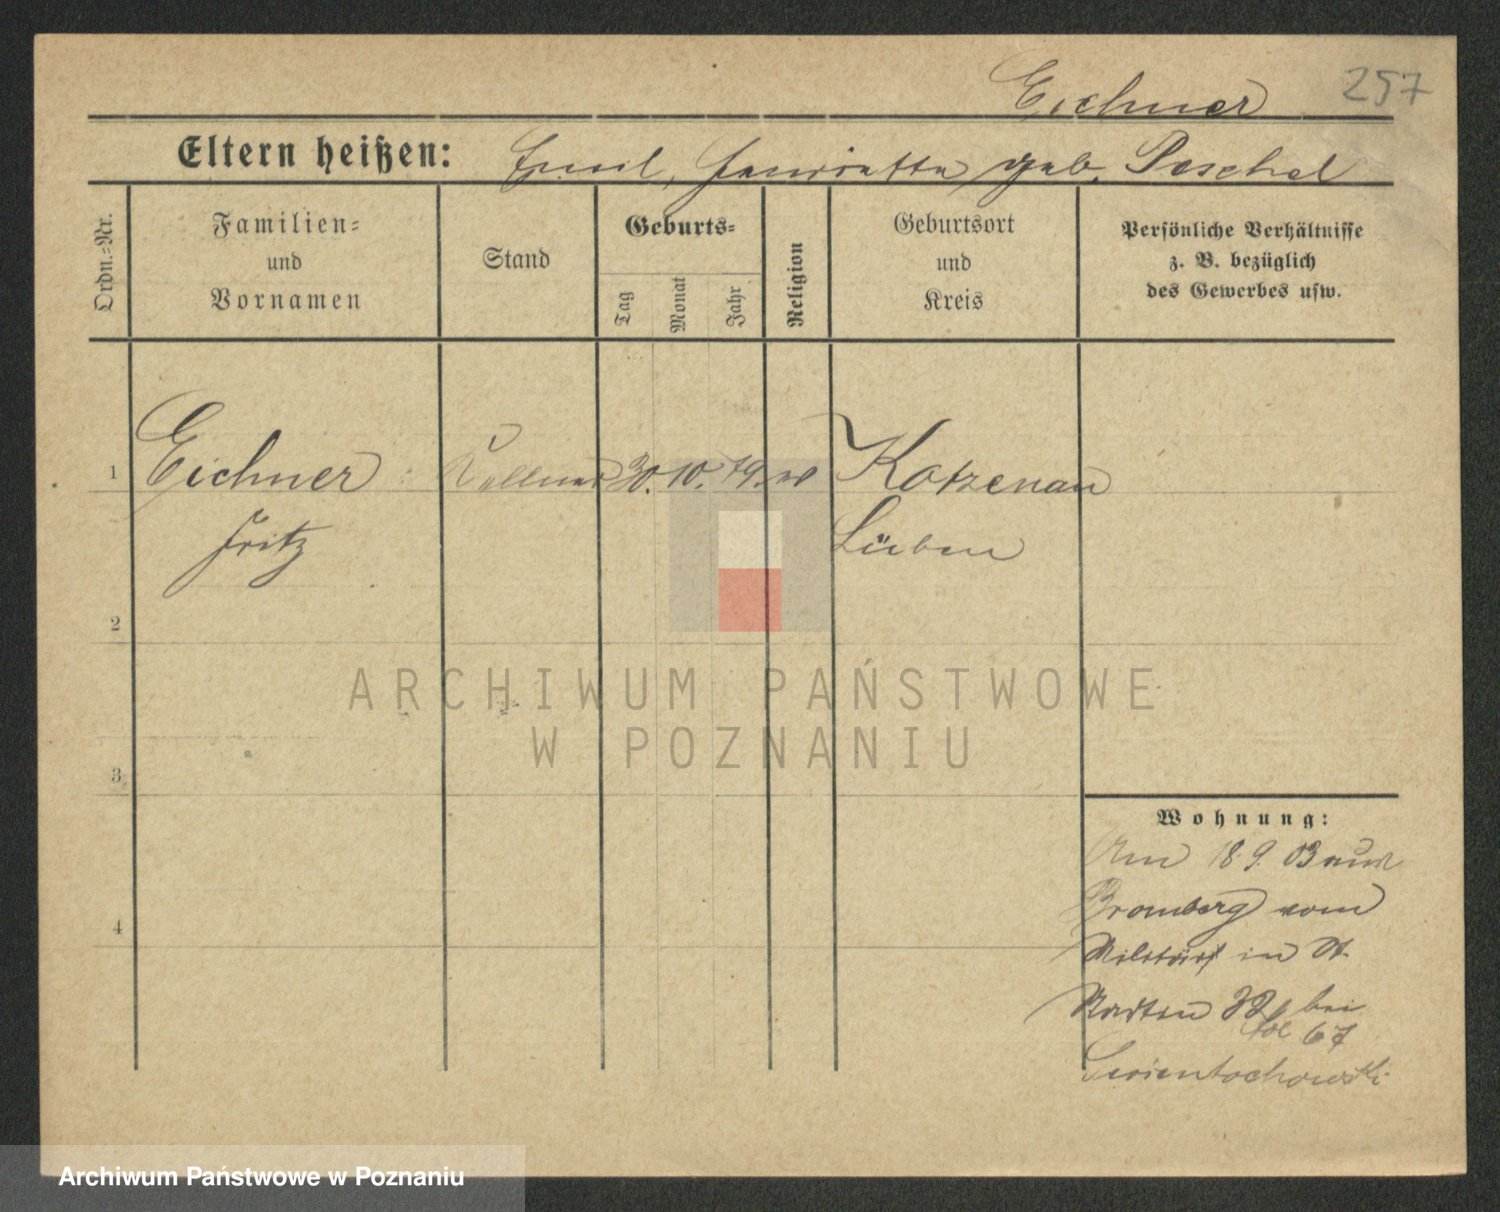 257
Eichner
Eltern heißen: Emil, Henriette geb. Peschel
Ordn.-Nr.
Familien-
und
Vornamen
Stand
Geburts-
Tag
Monat
Jahr
Religion
Geburtsort
und
Kreis
Persönliche Verhältnisse
z. B. bezüglich
des Gewerbes usw.
1 Eichner Kellner 30. 10. 79. ev Kotzenau
Fritz Lüben
2
ARCHIWUM PAŃSTWOWE
W POZNANIU
3
4
Wohnung:
Am 18. 9. 03 aus
Bromberg vom
Militär in St.
bei
67
Swientochowski
Archiwum Państwowe w Poznaniu